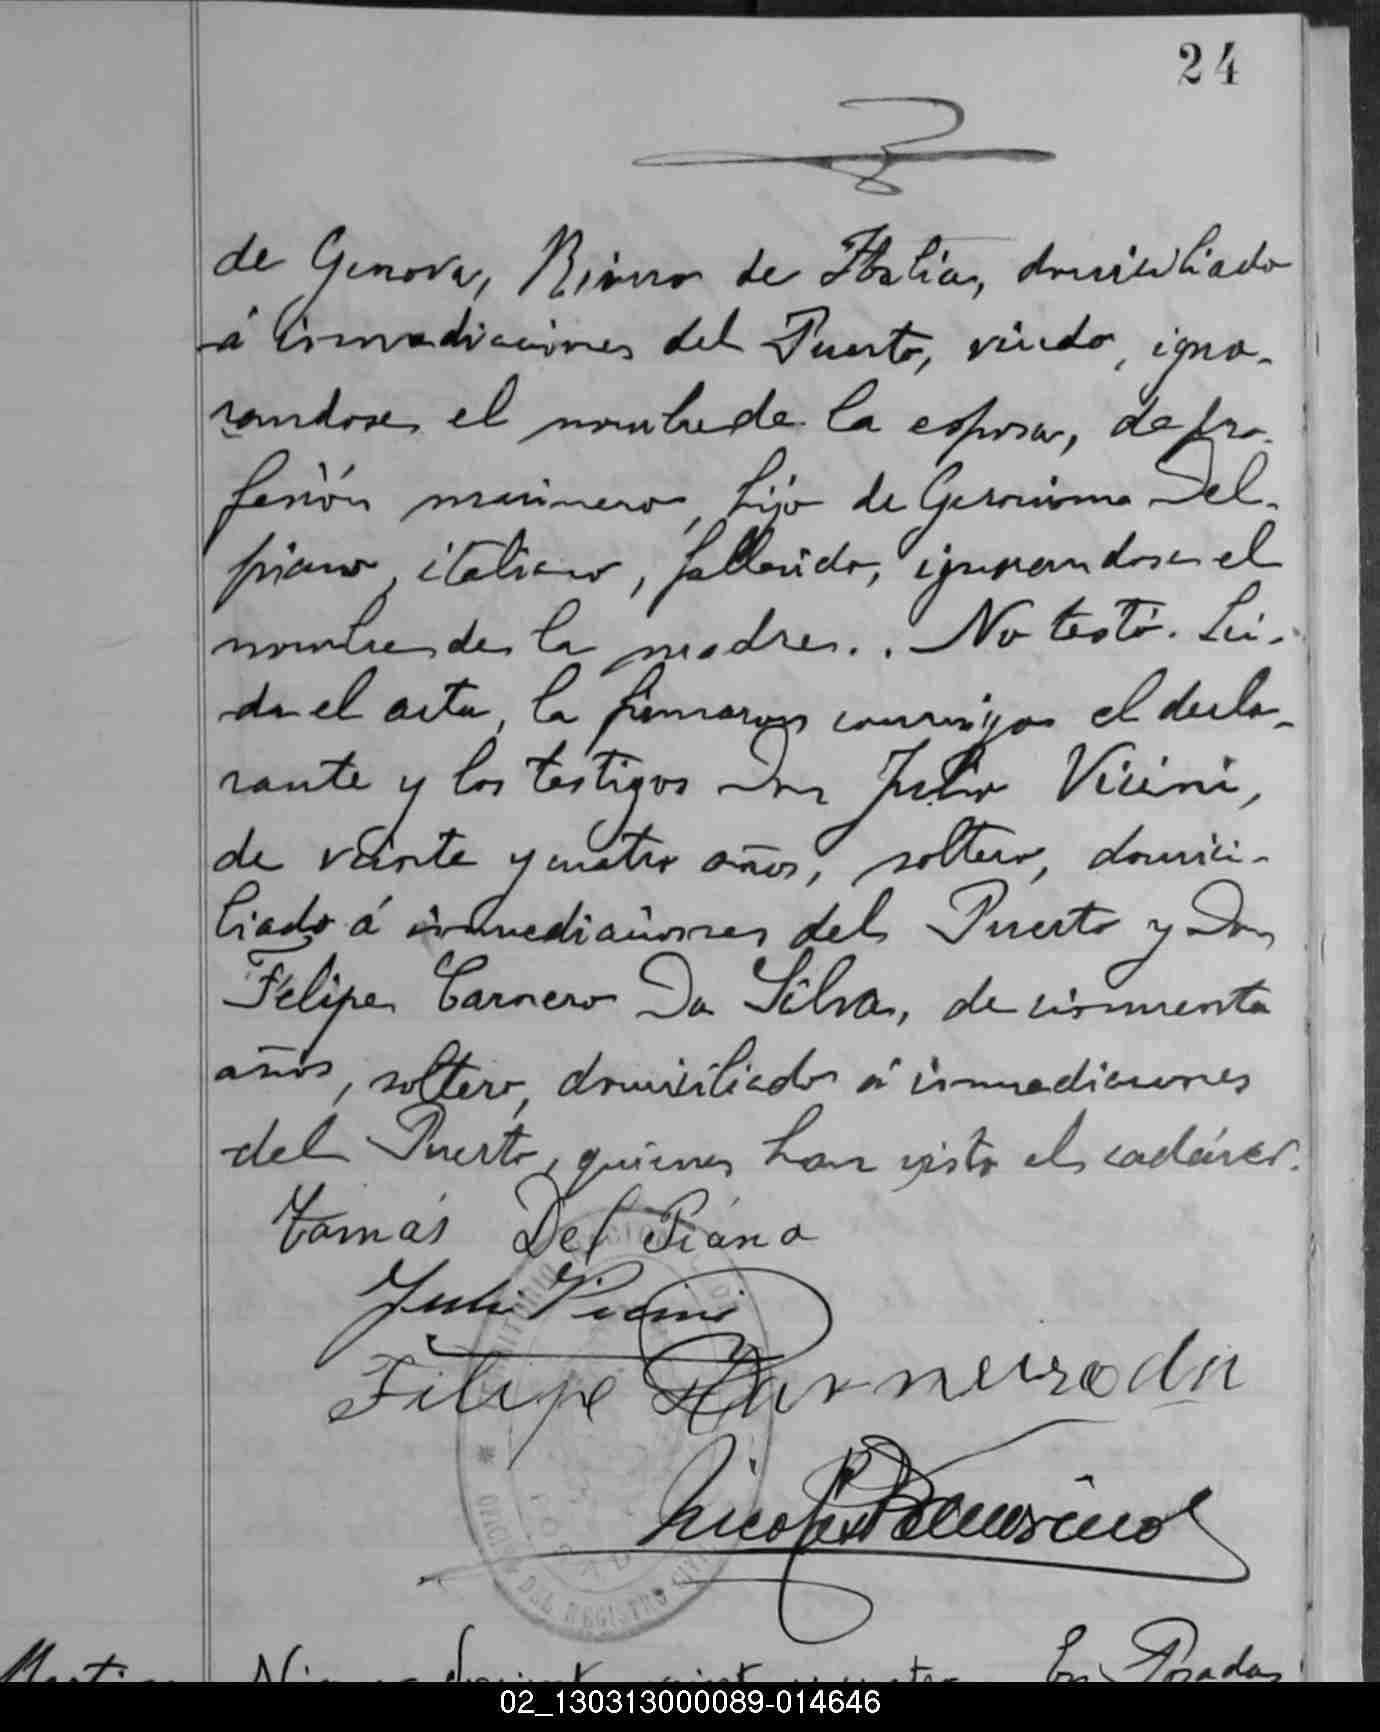 24
de Genova, Reino de Italia, domiciliado
á inmediaciones del Puerto, viudo, igno-
randose el nombre de la esposa, de pro-
fesión marinero, hijo de Geronimo Del-
piano, italiano, fallecido, ignorandose el
nombre de la madre.. No testó. Lei-
da el acta, la firmaron conmigo el decla-
rante y los testigos Don Julio Vicini,
de veinte y cuatro años, soltero, domici-
liado á inmediaciones del Puerto y Don
Felipe Carnero Da Silva, de cincuenta
años, soltero, domiciliado á inmediaciones
del Puerto, quienes han visto el cadáver.
Tomás Del Piano
Julio Vicini
Filipe Carneiro da
Nicolás
OFICINA DEL REGISTRO CIVIL
En Posadas
02_130313000089-014646